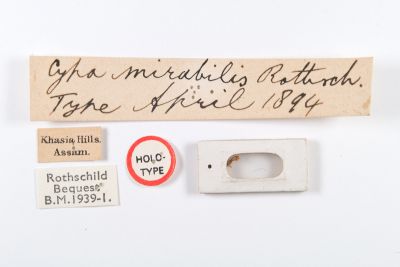 Cypa mirabilis Rothsch.
Type April 1894
Khasia Hills.
Assam.
HOLO-
TYPE
Rothschild
Bequest
B.M.1939-1.